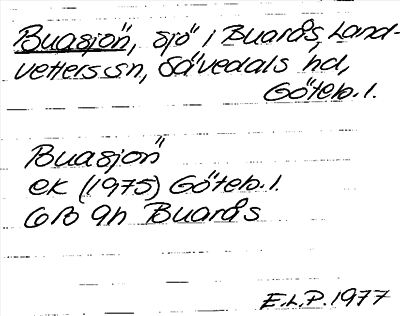 Buasjön, sjö i Buarås, Land-
vetters sn, Sävedals hd,
Göteb. l.
Buasjön
ek (1975) Göteb. l.
GB 9h Buarås
E.L.P. 1977